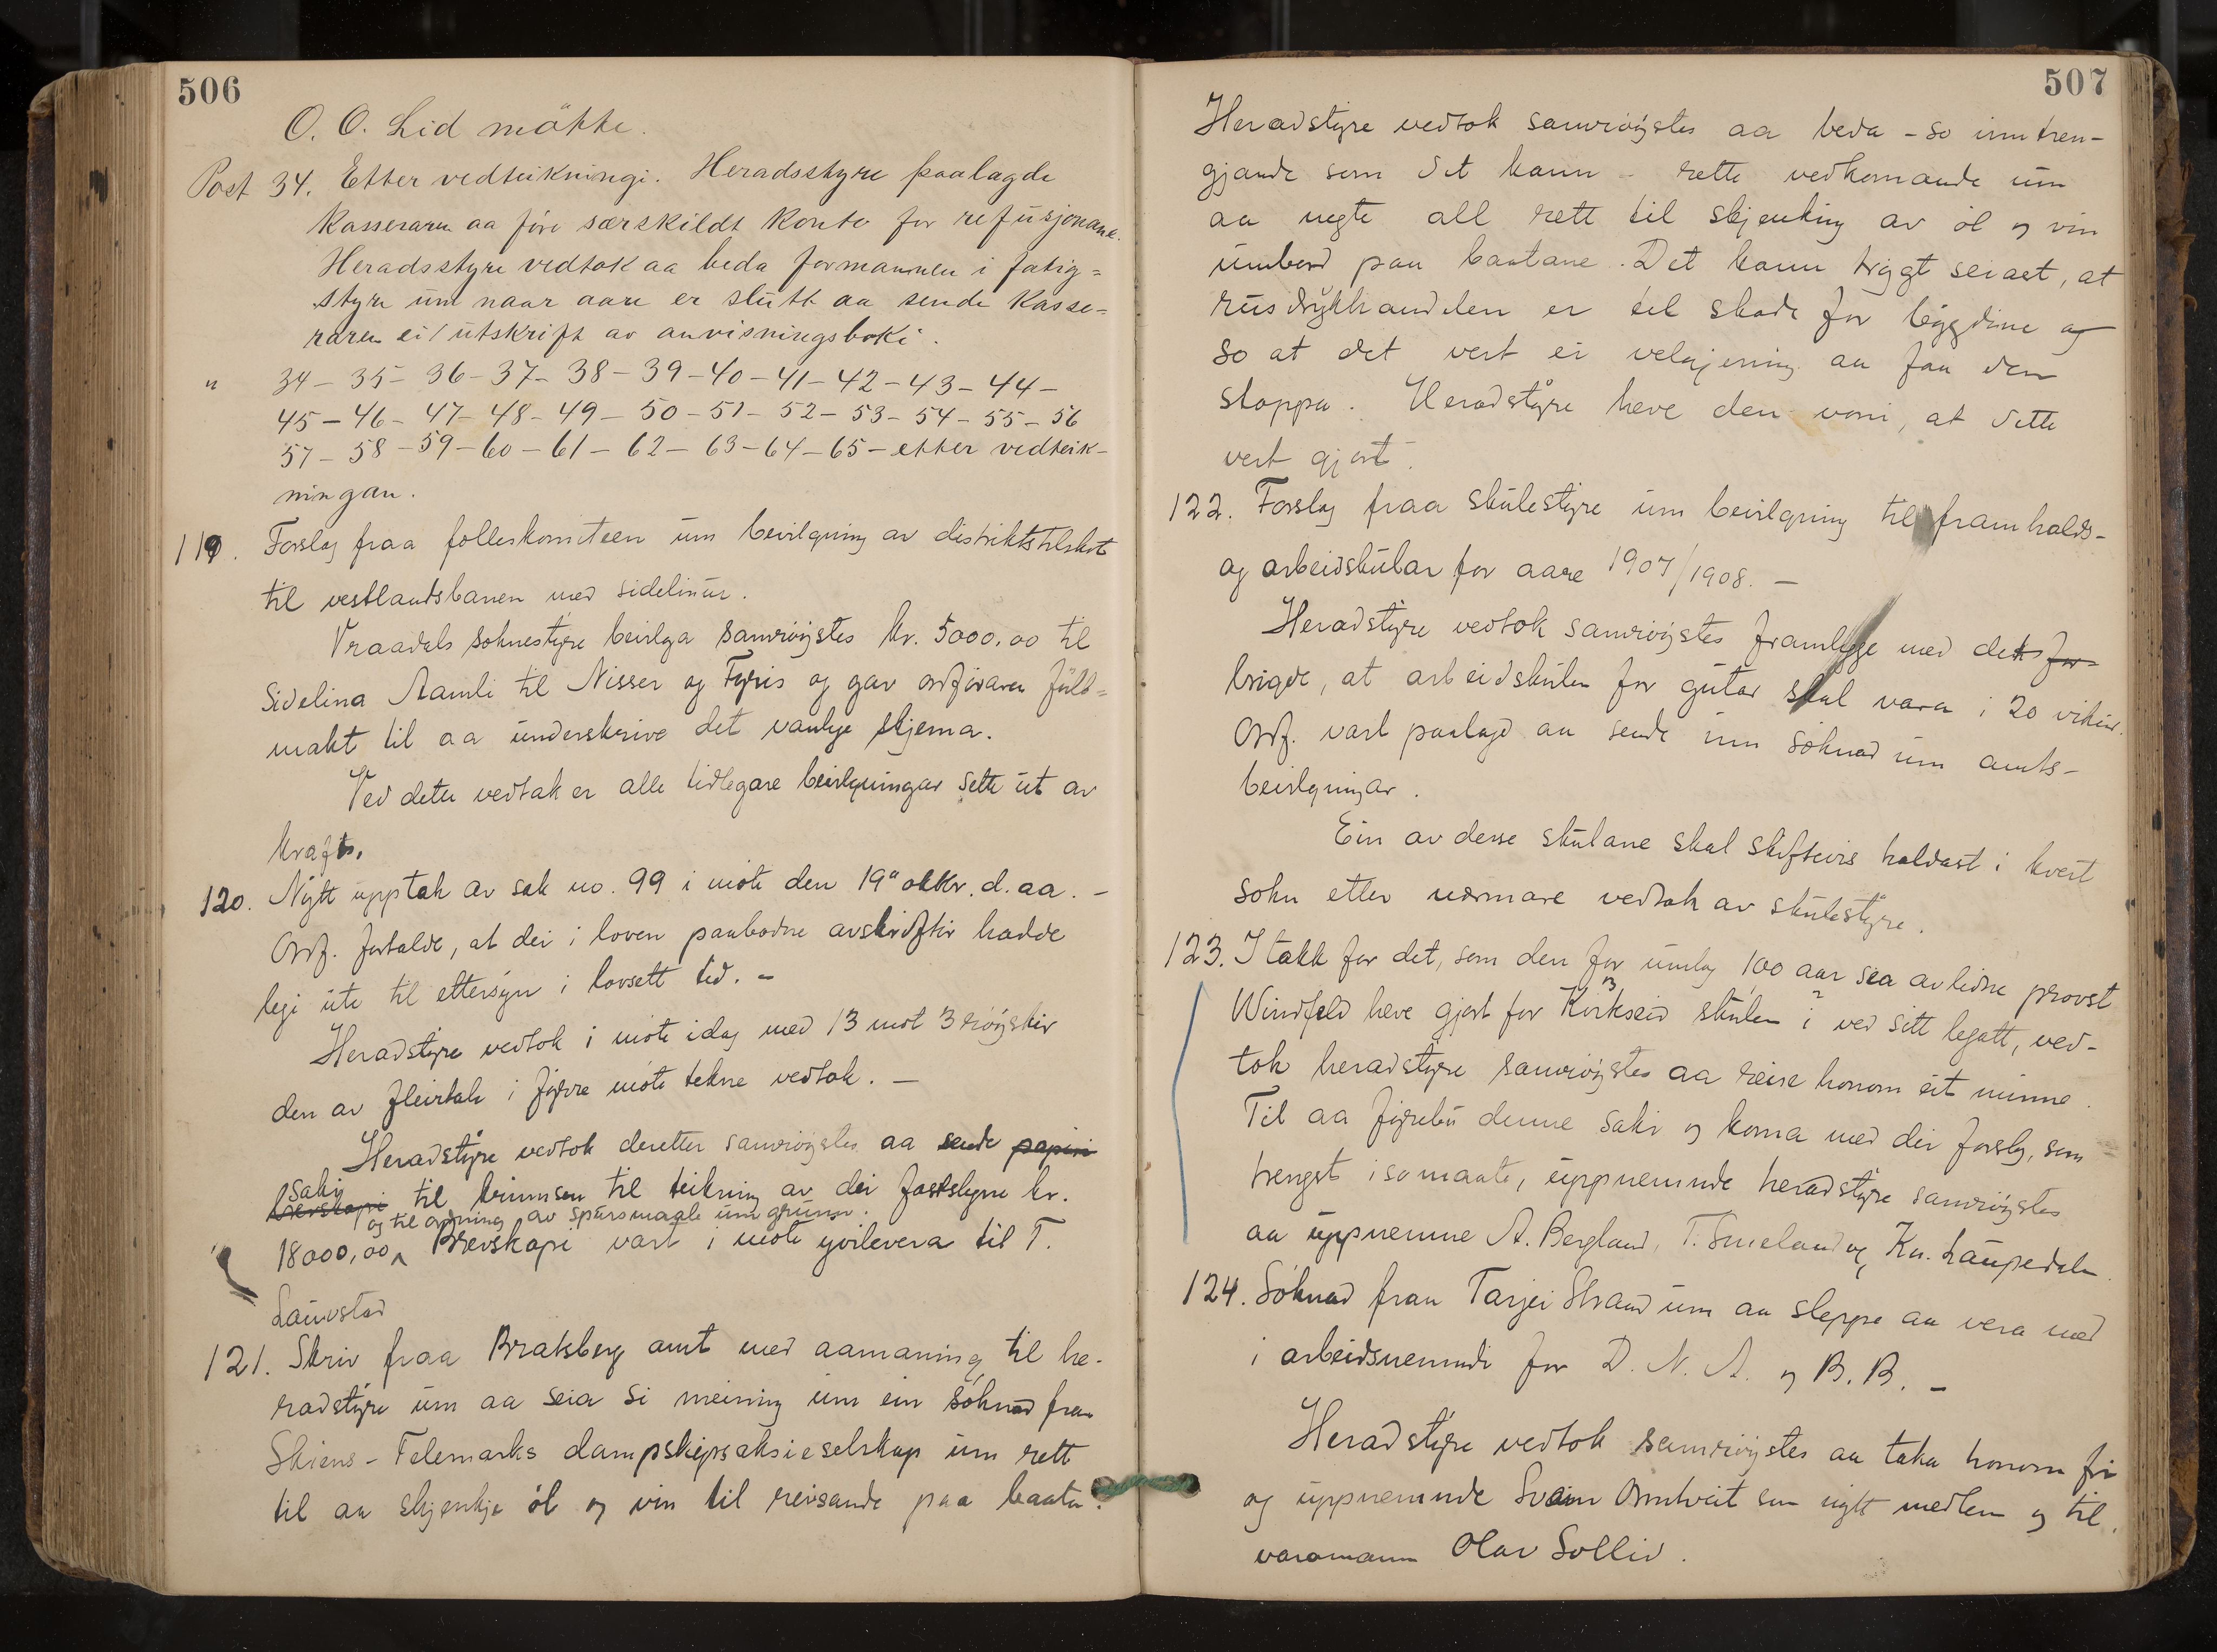 506
O. O. Lid mötte.
Post 34. Etter vedteikningi. Heradsstyre paalagde
Kasseraren aa före særskildt Konto for refusjonane.
Heradsstyre vedtok aa beda formannen i fatig=
styre um naar aare er slutt aa sende Kasse=
raren ei utskrift av anvisningsboki.
" 34 - 35 - 36 - 37 - 38 - 39 - 40 - 41 - 42 - 43 - 44 -
45 - 46 - 47 - 48 - 49 - 50 - 51 - 52 - 53 - 54 - 55 - 56
57 - 58 - 59 - 60 - 61 - 62 - 63 - 64 - 65 - etter vedteik-
ningan.
119. Forslag fraa felleskomiteen um bevilgning av distriktstilskot
til vestlandsbanen med sidelinur.
Vraadals soknestyre bevilga samröystes kr. 5000,00 til
Sidelina Aamli til Nisser og Fyris og gav ordföraren full=
makt til aa underskrive det vanlege skjema.
Ved dette vedtak er alle tidlegare bevilgningar sette ut av
kraft.
120. Nytt upptak av sak no. 99 i möte den 19" oktbr. d. aa. -
Ordf. fortalde, at dei i loven paabodne avskrifter hadde
legi ute til ettersyn i lovsett tid. -
Heradstyre vedtok i möte idag med 13 mot 3 röyster
den av fleirtale i fyrre möte tekne vedtak. -
Heradstyre vedtok deretter samröystes aa sende papiri
saki
brevskapi til kriminsen til teikning av dei fastslegne kr.
og til ordning av spursmaale um grunn.
18000,00 ^ Brevskapi vart i möte yvilevera til T.
Lauvstad
121. Skriv fraa Bratsberg amt med aamaning til he-
radstyre um aa seia si meining um ein söknad fraa
Skiens-Telemarks dampskipsaksieselskap um rett
til aa skjenkje öl og vin til reisande paa baatar.
507
Heradstyre vedtok samröystes aa beda - so inntren-
gjande som det kann - rette vedkomande um
aa negte all rett til skjenking av öl og vin
umbord paa baatane. Det kann trygt seiast, at
rusdrykkhandelen er til skade for bygdine og
so at det vert ei velgjering aa faa den
stoppa. Heradstyre heve den voni, at dette
vert gjort.
122. Forslag fraa skulestyre um bevilgning til framhalds-
og arbeidskular for aare 1907/1908. -
Heradstyre vedtok samröystes framlegge med det for-
brigde, at arbeidskulen for gutar skal vara i 20 vikur.
Ordf. vart paalagd aa sende inn söknad um amts-
bevilgningar.
Ein av desse skulane skal skiftevis haldast i kvert
sokn etter nærmare vedtak av skulestyre.
123. I takk for det, som den for umlag 100 aar sea avlidne provst
Windfeld heve gjort for Kirkseid skulen i ved sitt legatt, ved-
tok heradstyre samröystes aa reise honom eit minne.
Til aa fyrebu denne saki og koma med dei forslag, som
trengst i so maate, uppnemnde heradstyre samröystes
aa uppnemne A. Bergland, T. Smeland og Kn. Laupedalen.
124. Söknad fraa Tarjei Strand um aa sleppe aa vera med
i arbeidsnemndi for D. N. A. og B. B. -
Heradstyre vedtok samröystes aa taka honom fri
og uppnemnde Svein Omtveit som nytt medlem og til
varamann Olav Sollid.